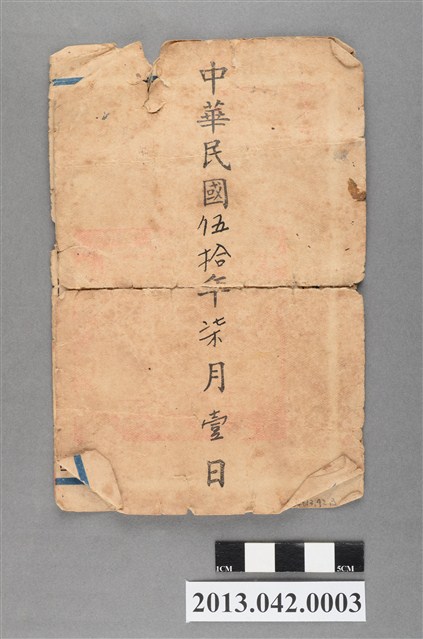 中華民國伍拾年柒月壹日
1CM 5CM
2013.042.0003